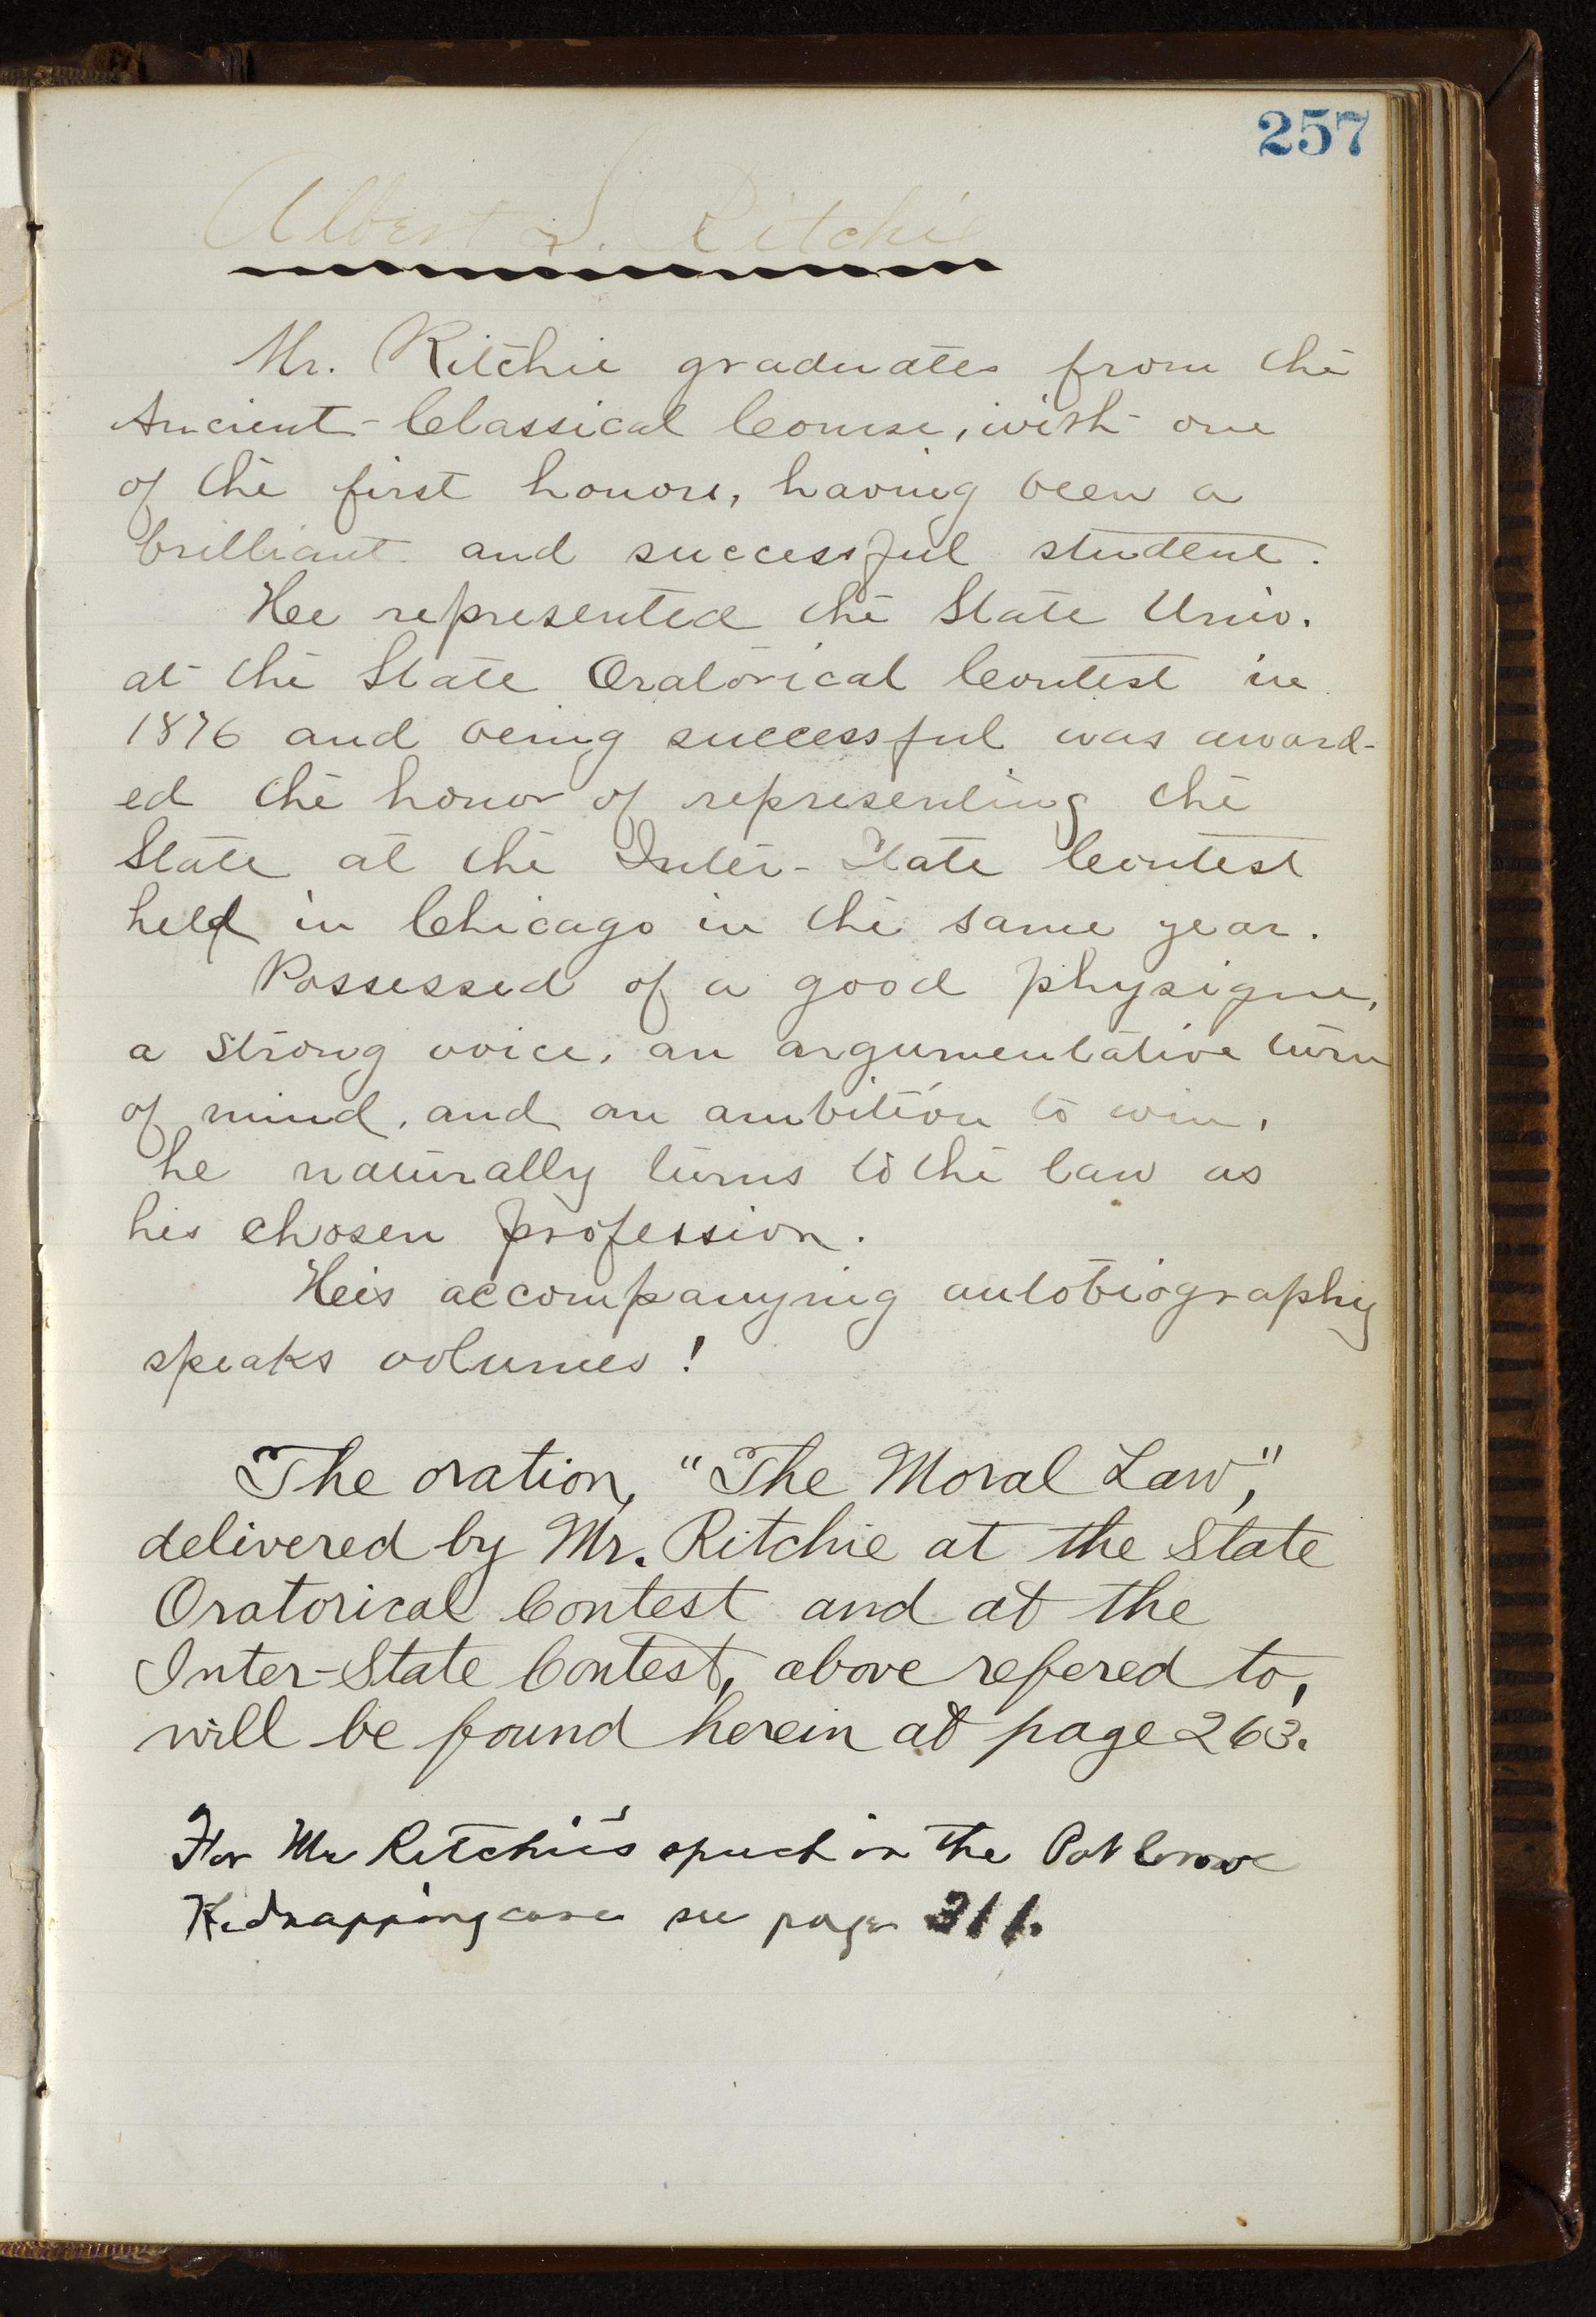 257
Albert S. Ritchie
Mr. Ritchie graduates from the
Ancient Classical Course, with one
of the first honors, having been a
brilliant and successful student.
He represented the State Univ.
at the State Oratorical Contest in
1876 and being successful was award-
ed the honor of representing the
State at the Inter-State Contest
held in Chicago in the same year.
Possessed of a good physique,
a strong voice, an argumentative turn
of mind, and an ambition to win,
he naturally turns to the law as
his chosen profession.
His accompanying autobiography
speaks volumes!
The oration, "The Moral Law,"
delivered by Mr. Ritchie at the State
Oratorical Contest and at the
Inter-State Contest, above refered to,
will be found herein at page 263.
For Mr Ritchie's speech in the Pat Crowe
Kidnapping case see page 311.